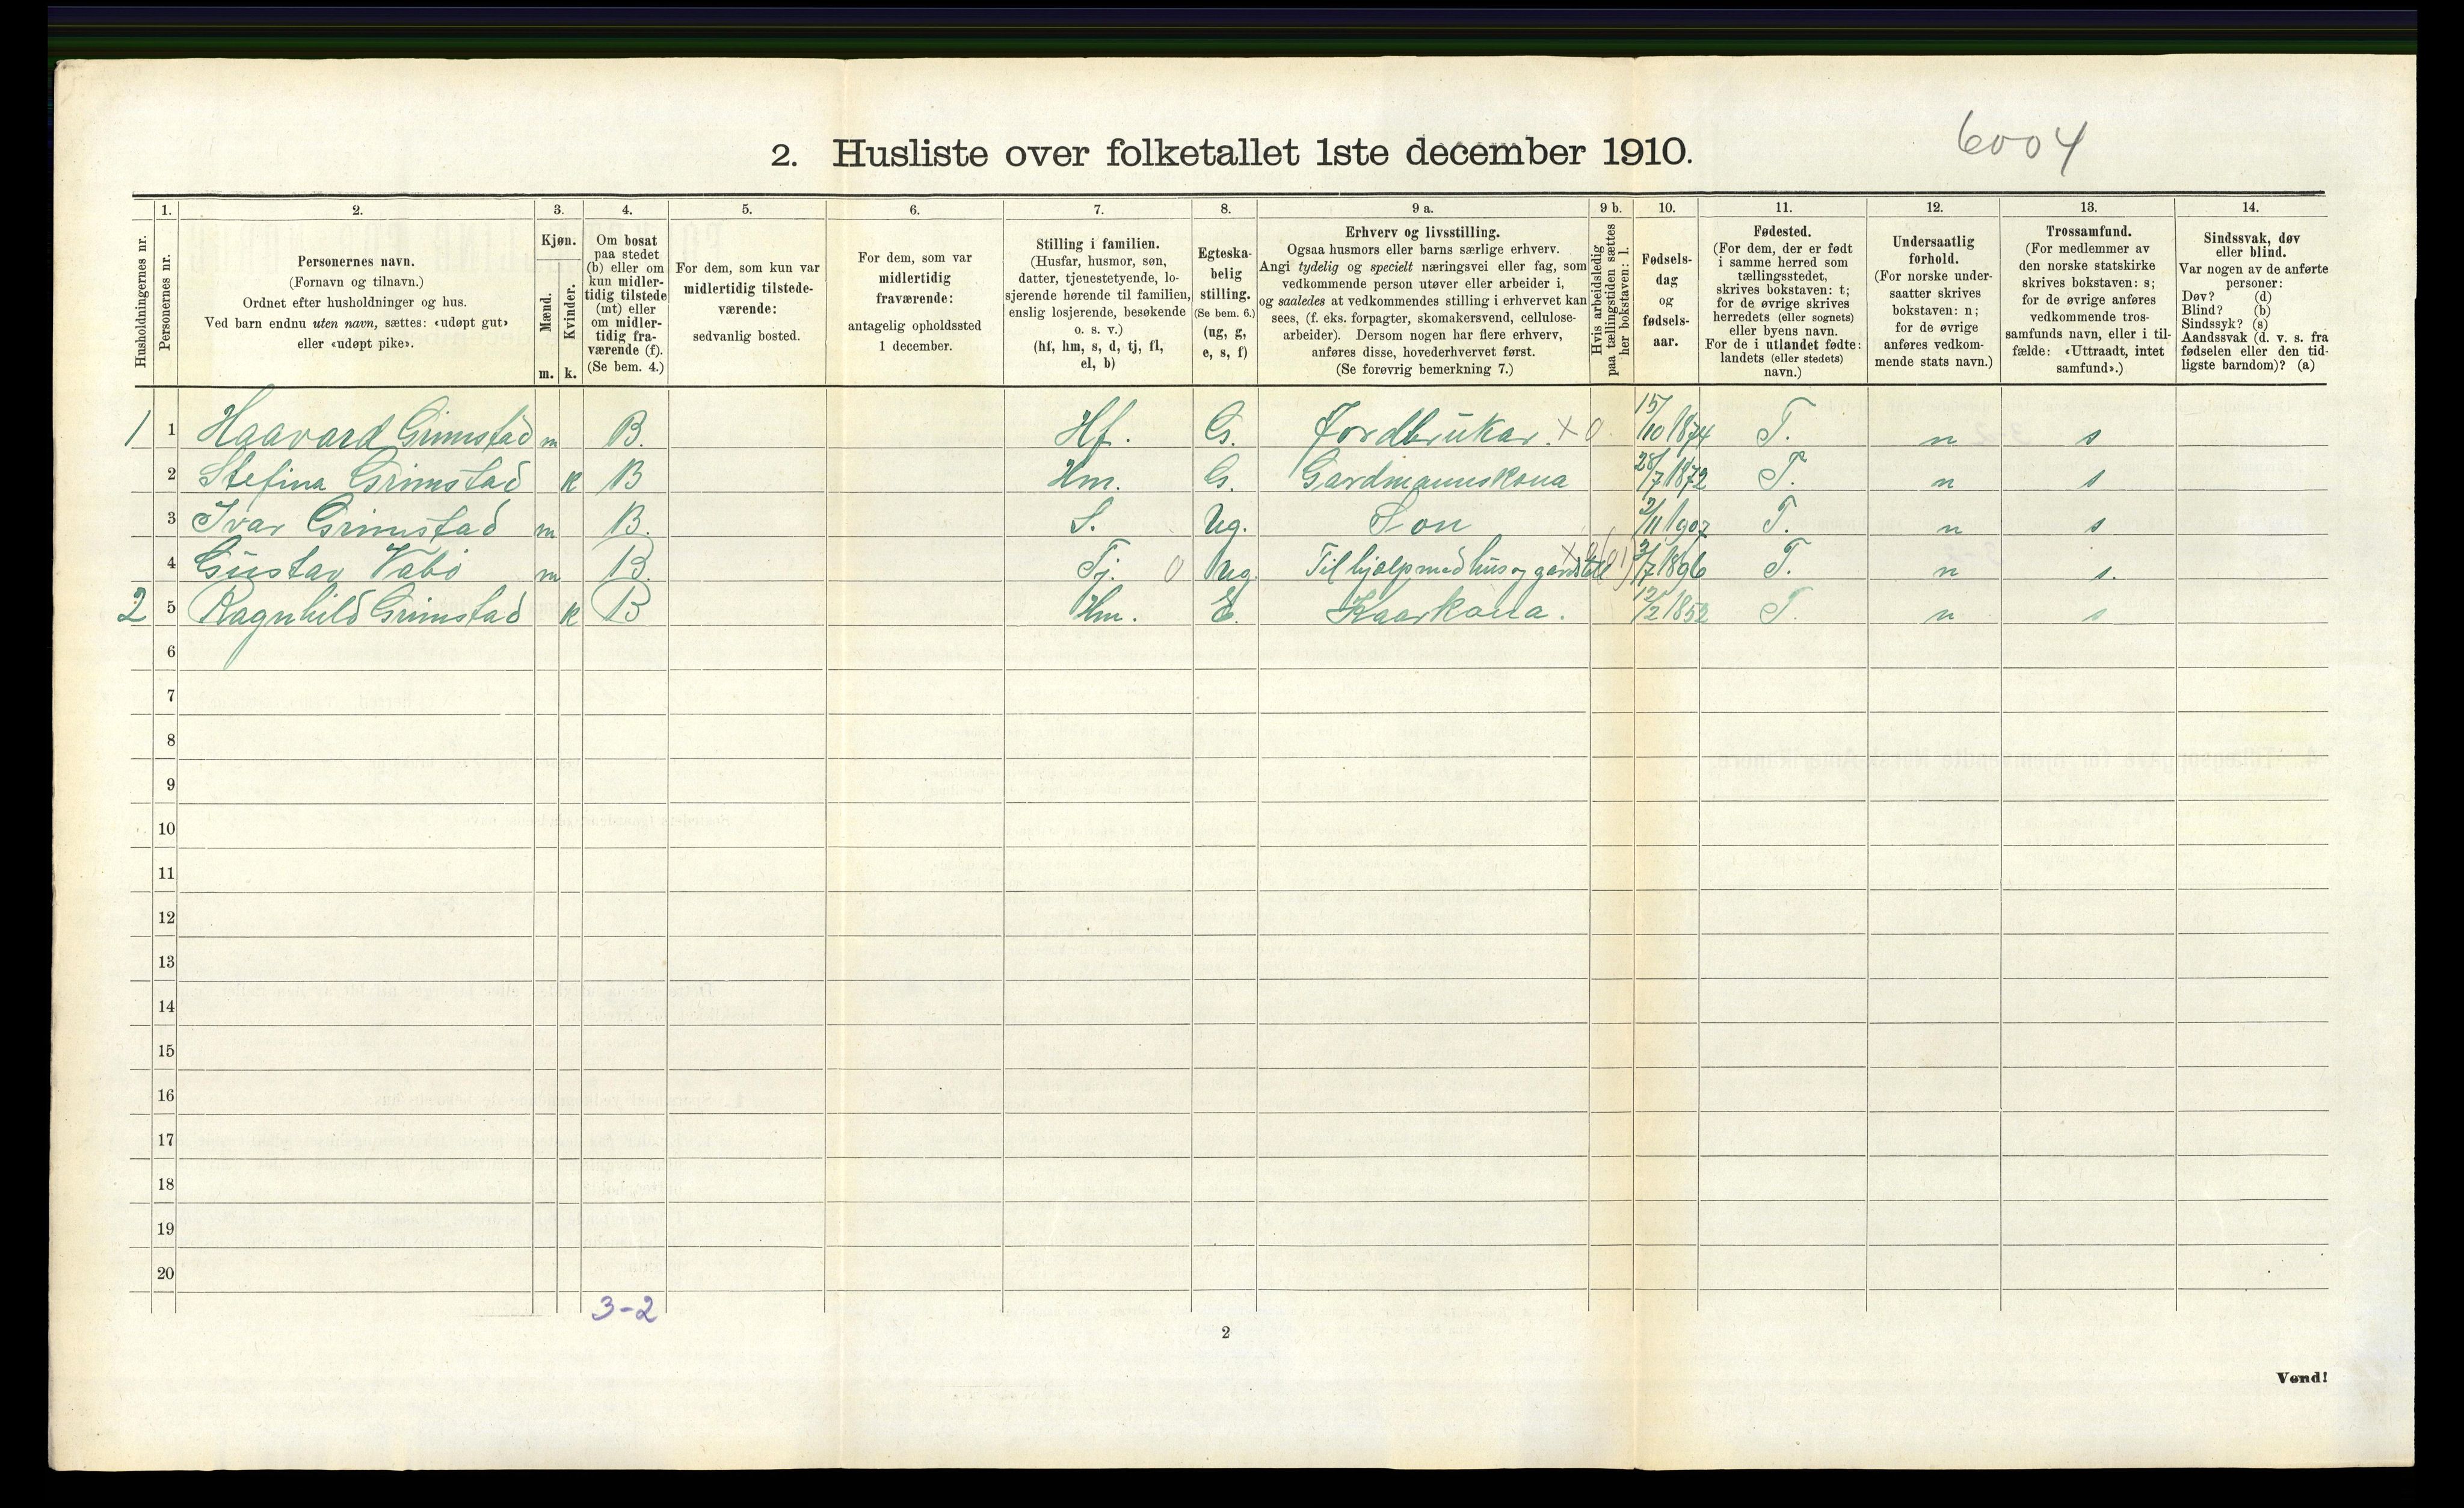 6004
2. Husliste over folketallet 1ste december 1910.
Husholdningernes nr.
1.
Personernes nr.
2.
Personernes navn.
(Fornavn og tilnavn.)
Ordnet efter husholdninger og hus.
Ved barn endnu uten navn, sættes: «udøpt gut»
eller «udøpt pike».
3.
Kjøn.
Mænd.
Kvinder.
m. k.
4.
Om bosat
paa stedet
(b) eller om
kun midler-
tidig tilstede
(mt) eller
om midler-
tidig fra-
værende (f).
(Se bem. 4.)
5.
For dem, som kun var
midlertidig tilstede-
værende:
sedvanlig bosted.
6.
For dem, som var
midlertidig
fraværende:
antagelig opholdssted
1 december.
7.
Stilling i familien.
(Husfar, husmor, søn,
datter, tjenestetyende, lo-
sjerende hørende til familien,
enslig losjerende, besøkende
o. s. v.)
(hf, hm, s, d, tj, fl,
el, b)
8.
Egteska-
belig
stilling.
(Se bem. 6.)
(ug, g,
e, s, f)
9 a.
Erhverv og livsstilling.
Ogsaa husmors eller barns særlige erhverv.
Angi tydelig og specielt næringsvei eller fag, som
vedkommende person utøver eller arbeider i,
og saaledes at vedkommendes stilling i erhvervet kan
sees, (f. eks. forpagter, skomakersvend, cellulose-
arbeider). Dersom nogen har flere erhverv,
anføres disse, hovederhvervet først.
(Se forøvrig bemerkning 7.)
9 b.
Hvis arbeidsledig
paa tællingstiden sættes
her bokstaven: l.
10.
Fødsels-
dag
og
fødsels-
aar.
11.
Fødested.
(For dem, der er født
i samme herred som
tællingsstedet,
skrives bokstaven: t;
for de øvrige skrives
herredets (eller sognets)
eller byens navn.
For de i utlandet fødte:
landets (eller stedets)
navn.)
12.
Undersaatlig
forhold.
(For norske under-
saatter skrives
bokstaven: n;
for de øvrige
anføres vedkom-
mende stats navn.)
13.
Trossamfund.
(For medlemmer av
den norske statskirke
skrives bokstaven: s;
for de øvrige anføres
vedkommende tros-
samfunds navn, eller i til-
fælde: «Uttraadt, intet
samfund».)
14.
Sindssvak, døv
eller blind.
Var nogen av de anførte
personer:
Døv? (d)
Blind? (b)
Sindssyk? (s)
Aandssvak (d. v. s. fra
fødselen eller den tid-
ligste barndom)? (a)
1 1 Haavard Grimstad m B. Hf. G. Jordbrukar. X 0 15/10 1874 T. n s
2 Stefina Grimstad k B Hm. G. Gardmannskona 28/7 1872 T. n s
3 Ivar Grimstad m B. S. Ug. Son 2/11 1907 T. n s
4 Gustav Vabö m B. Tj. 0 Ug. Til hjelp med hus og gardstell 3/7 1896 T. n s.
2 5 Ragnhild Grimstad k B Hm. E. Kaarkona. 12/2 1852 T. n s
6
7
8
9
10
11
12
13
14
15
16
17
18
19
20
3-2
2
Vend!